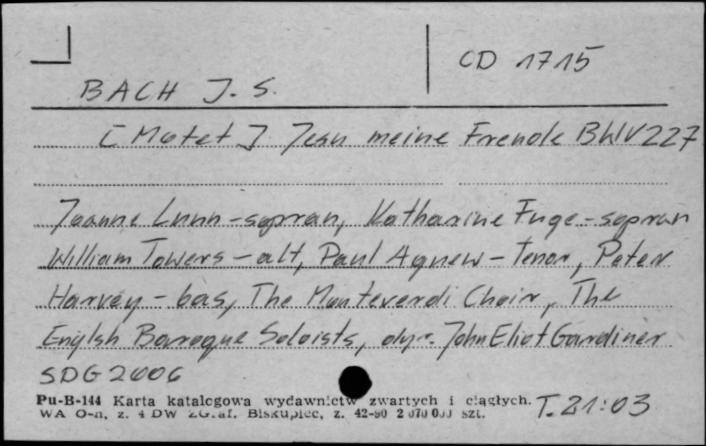 CD 1715
BACH J. S.
[Motet] Jesu meine Freude BWV 227
Joanne Lunn - sopran, Katharine Fuge - sopran
William Towers - alt, Paul Agnew - Tenor, Peter
Harvey - bas, The Monteverdi Choir, The
English Baroque Soloists, dyr. John Eliot Gardiner
SDG 2006
Pu-B-144 Karta katalogowa wydawnictw zwartych i ciągłych.
WA O-n, z. 4 DW ZG.af. Biskupiec, z. 42-90 2 070 000 szt.
T. 21:03